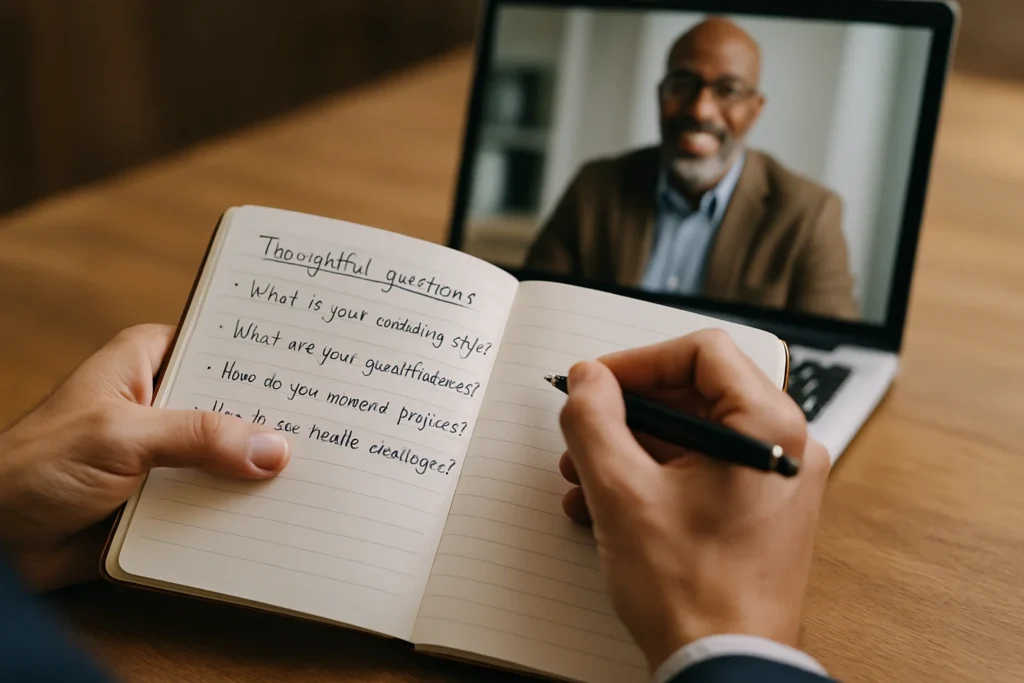 Thooightful questions
· What is your conduding style?
· What are your guealtfiadences?
· How do you momend projices?
to soe healle ciealloger?